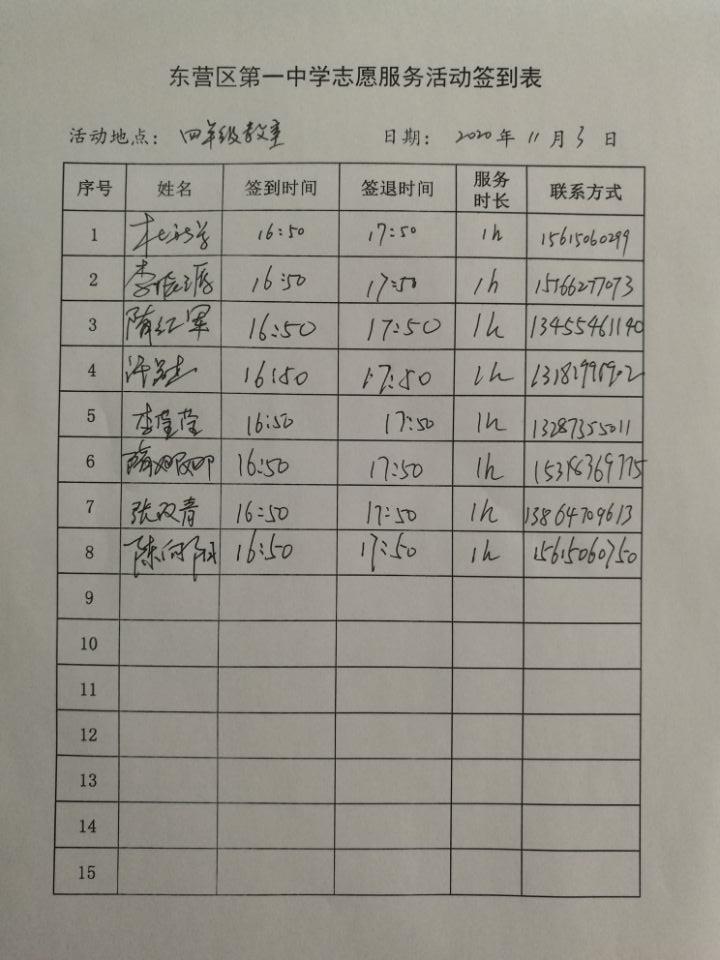 东营区第一中学志愿服务活动签到表
活动地点： 四年级教室 日期： 2020 年 11 月 3 日
序号 姓名 签到时间 签退时间 服务时长 联系方式
1 16:50 17:50 1h 15615060299
2 16:50 17:50 1h 15166277073
3 隋红军 16:50 17:50 1h 13455461140
4 16:50 17:50 1h
5 李莹莹 16:50 17:50 1h 13287355011
6 16:50 17:50 1h 15318369775
7 张双青 16:50 17:50 1h 13864709613
8 陈向阳 16:50 17:50 1h 15615060750
9
10
11
12
13
14
15